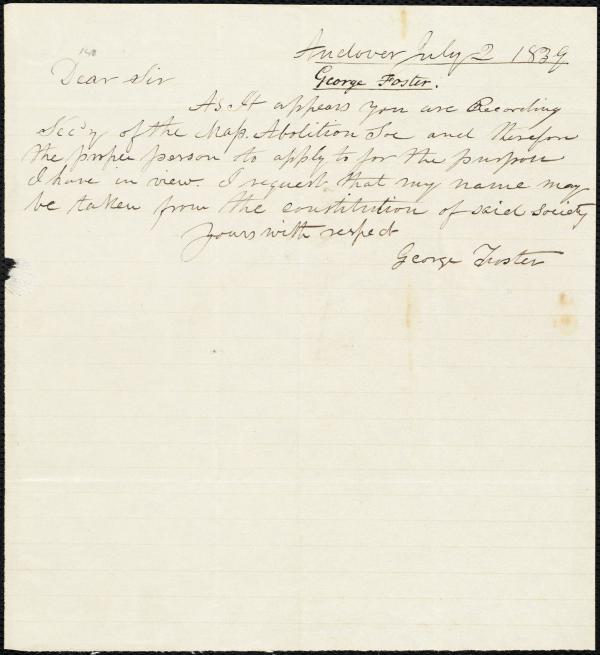 Andover July 2 1839
George Foster.
Dear Sir
As It appears you are Recording
Sec'y of the Mass. Abolition Soc and therefore
the proper person to apply to for the purpose
I have in view. I request that my name may
be taken from the constitution of said society
Yours with respect
George Foster